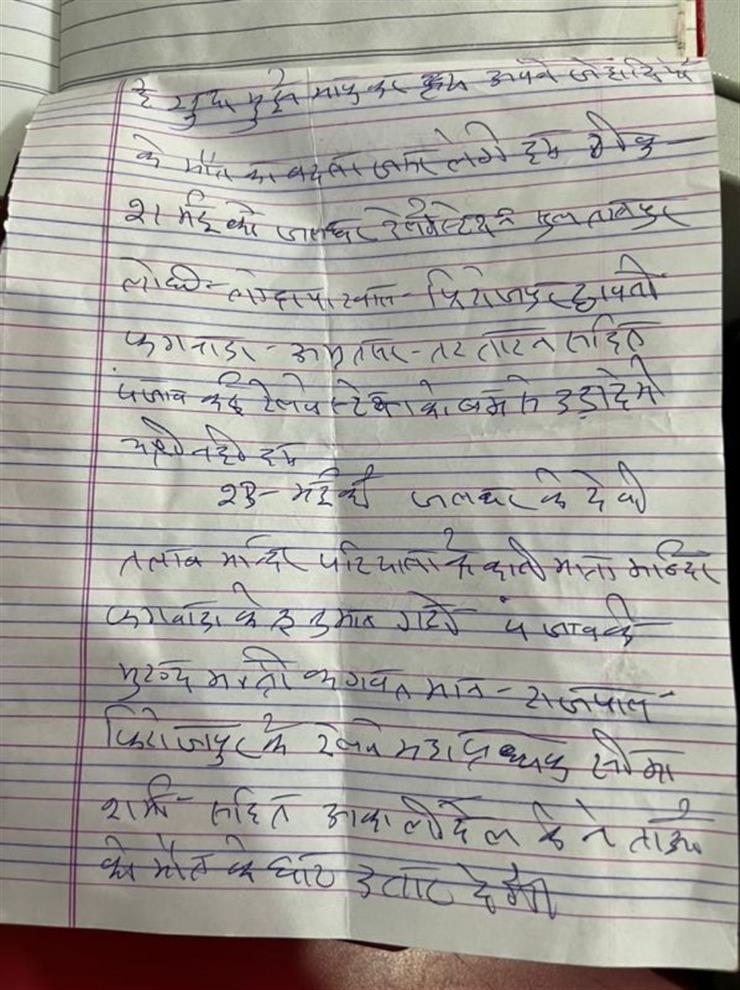 हे खुदा मुझे माफ करना हम अपने जेहादियों
के मौत का बदला जरूर लेगे हम ठीक
21 मई को जलंधर रेलवे स्टेशन सुलतानपुर
लोधी - लोहिया खास - फिरोजपुर
फगवाडा - अमृतसर - तर तारन सहित
पंजाब कई रेलवे स्टेशनो को बम से उडा देगे
यही नही हम
23 - मई को जलंधर के देवी
तलाव मन्दिर पटियाला के काली माता मन्दिर
फगवाडा के हनुमान गढी पंजाब के
मुख्य मन्त्री भगवंत मान - राज्यपाल
फिरोजपुर के रेलवे मडल प्रबन्धक सीमा
शर्मा सहित अकाली दल के नेताओ
को मौत के घाट उतार देगे